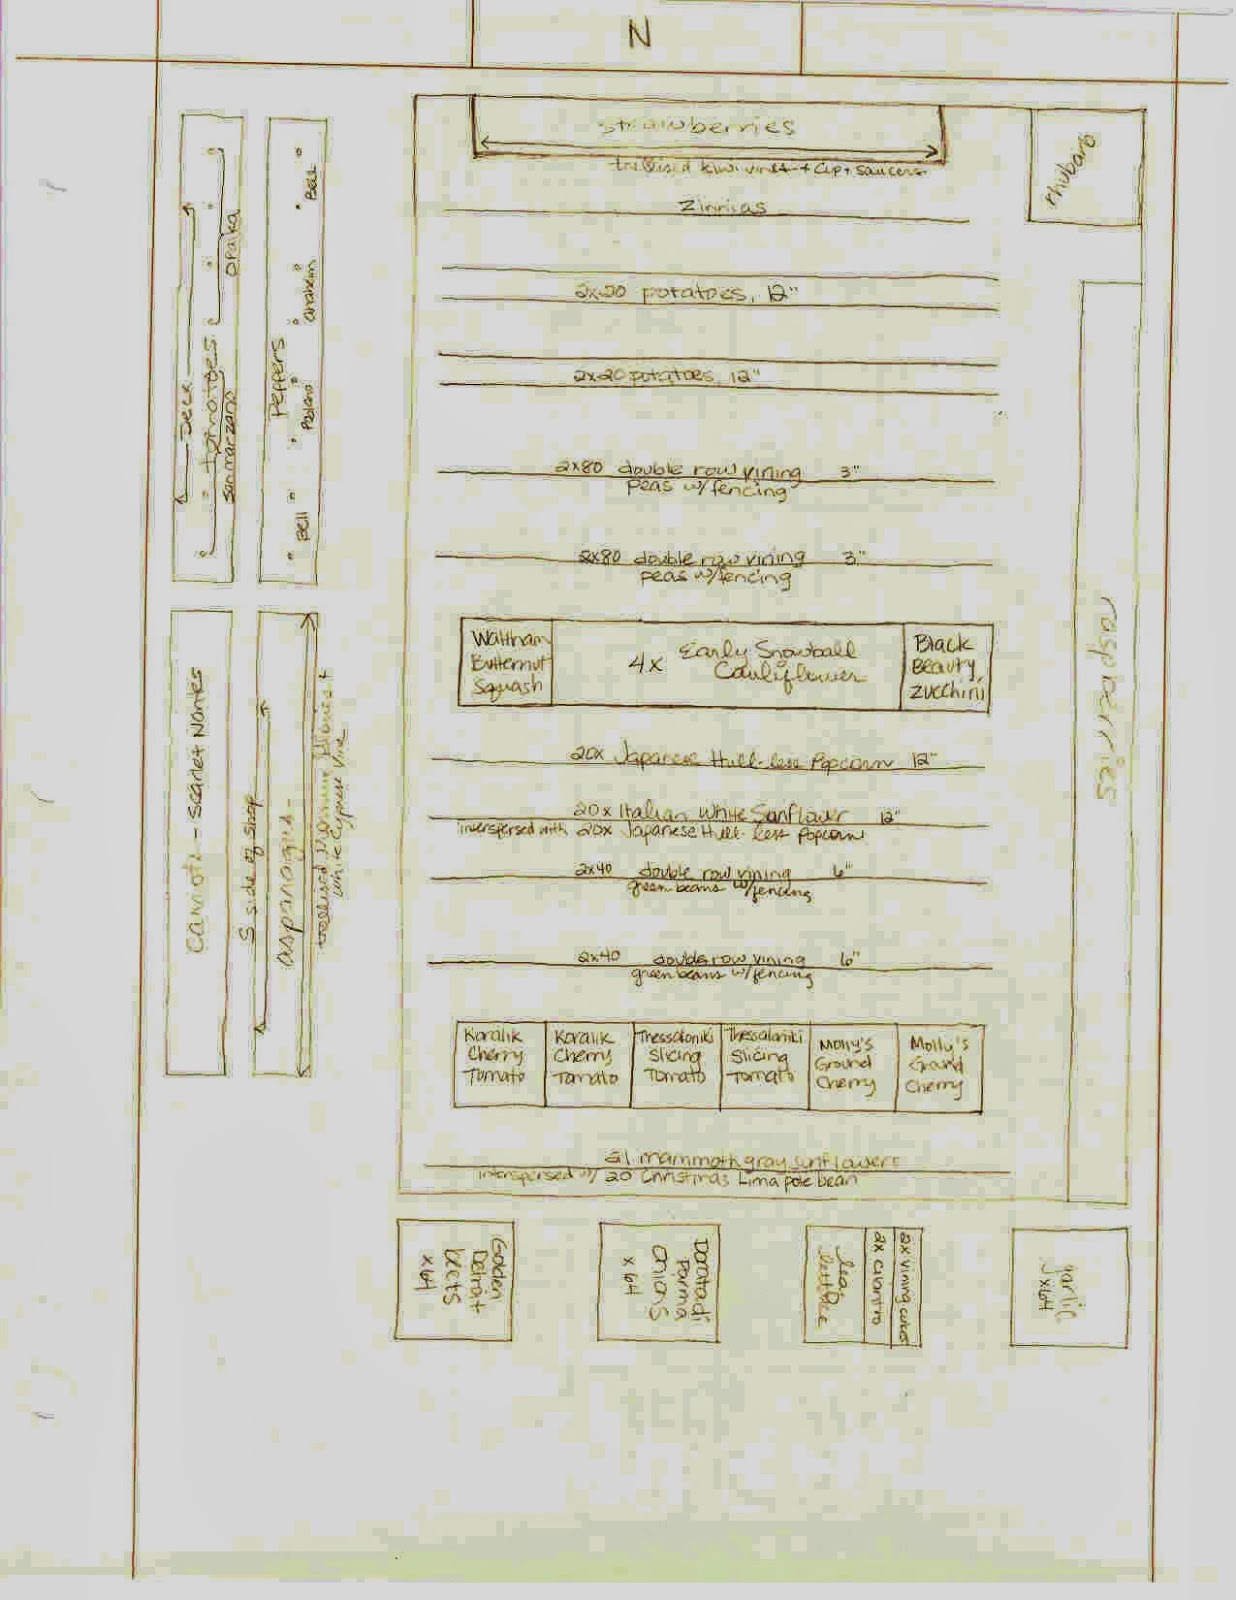 N
strawberries
trellised kiwi vines + cup + saucers
Zinnias
rhubarb
2x20 potatoes, 12"
2x20 potatoes, 12"
2x80 double row vining 3"
peas w/fencing
2x80 double row vining 3"
peas w/fencing
Waltham
Butternut
Squash
4x Early Snowball
Cauliflower
Black
Beauty
Zucchini
20x Japanese Hull-less Popcorn 12"
20x Italian White Sunflower 12"
interspersed with 20x Japanese Hull-less Popcorn
2x40 double row vining 6"
green beans w/fencing
2x40 double row vining 6"
green beans w/fencing
Koralik
Cherry
Tomato
Koralik
Cherry
Tomato
Thessaloniki
Slicing
Tomato
Thessaloniki
Slicing
Tomato
Molly's
Ground
Cherry
Molly's
Ground
Cherry
21 mammoth gray sunflowers
interspersed w/ 20 Christmas Lima pole bean
raspberries
Deck
tomatoes
San marzano
Opalka
Peppers
Bell
Poblano
anaheim
Bell
carrots - Scarlet Nantes
S side of Shop
asparagus
white cypress vine
Golden
Detroit
beets
x64
Dorata di
Parma
Onions
x64
leaf
lettuce
2x cilantro
2x vining cukes
garlic
x64